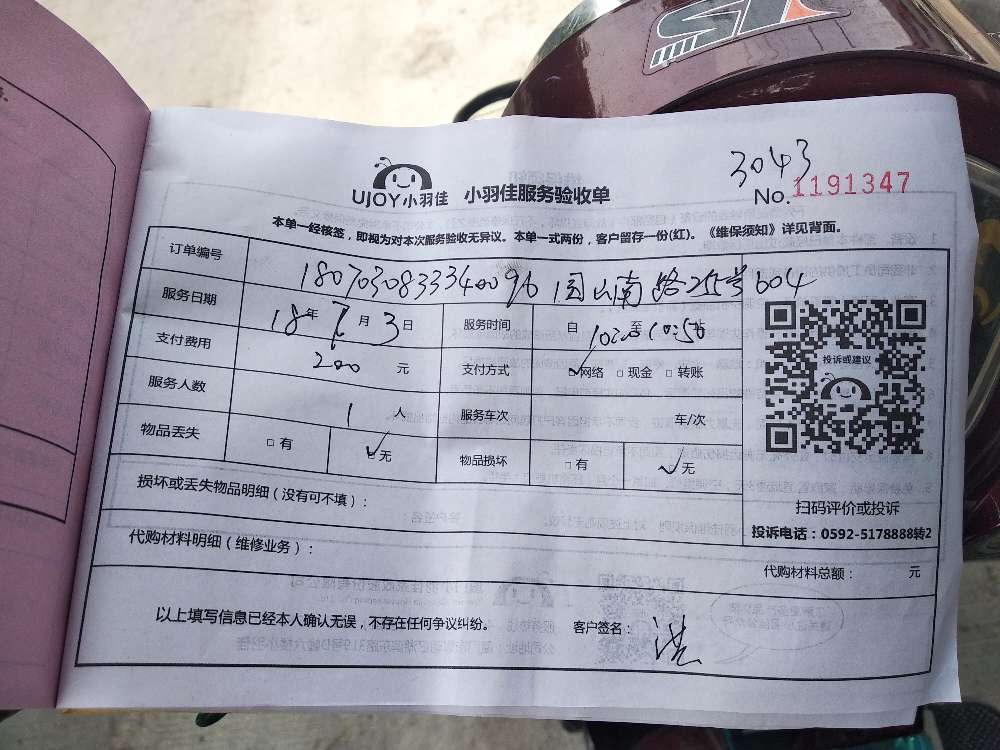 3043
UJOY小羽佳 小羽佳服务验收单 No.1191347
本单一经核签，即视为对本次服务验收无异议。本单一式两份，客户留存一份(红)。《维保须知》详见背面。
订单编号 1807030833340096 园山南路255号604
服务日期 18年7月3日 服务时间 自 至
支付费用 200 元 支付方式 网络 □ 现金 □ 转账
服务人数 1 人 服务车次 车/次
物品丢失 □ 有 无 物品损坏 □ 有 无
投诉或建议
损坏或丢失物品明细（没有可不填）：
扫码评价或投诉
投诉电话：0592-5178888转2
代购材料明细（维修业务）：
代购材料总额： 元
以上填写信息已经本人确认无误，不存在任何争议纠纷。 客户签名： 洪